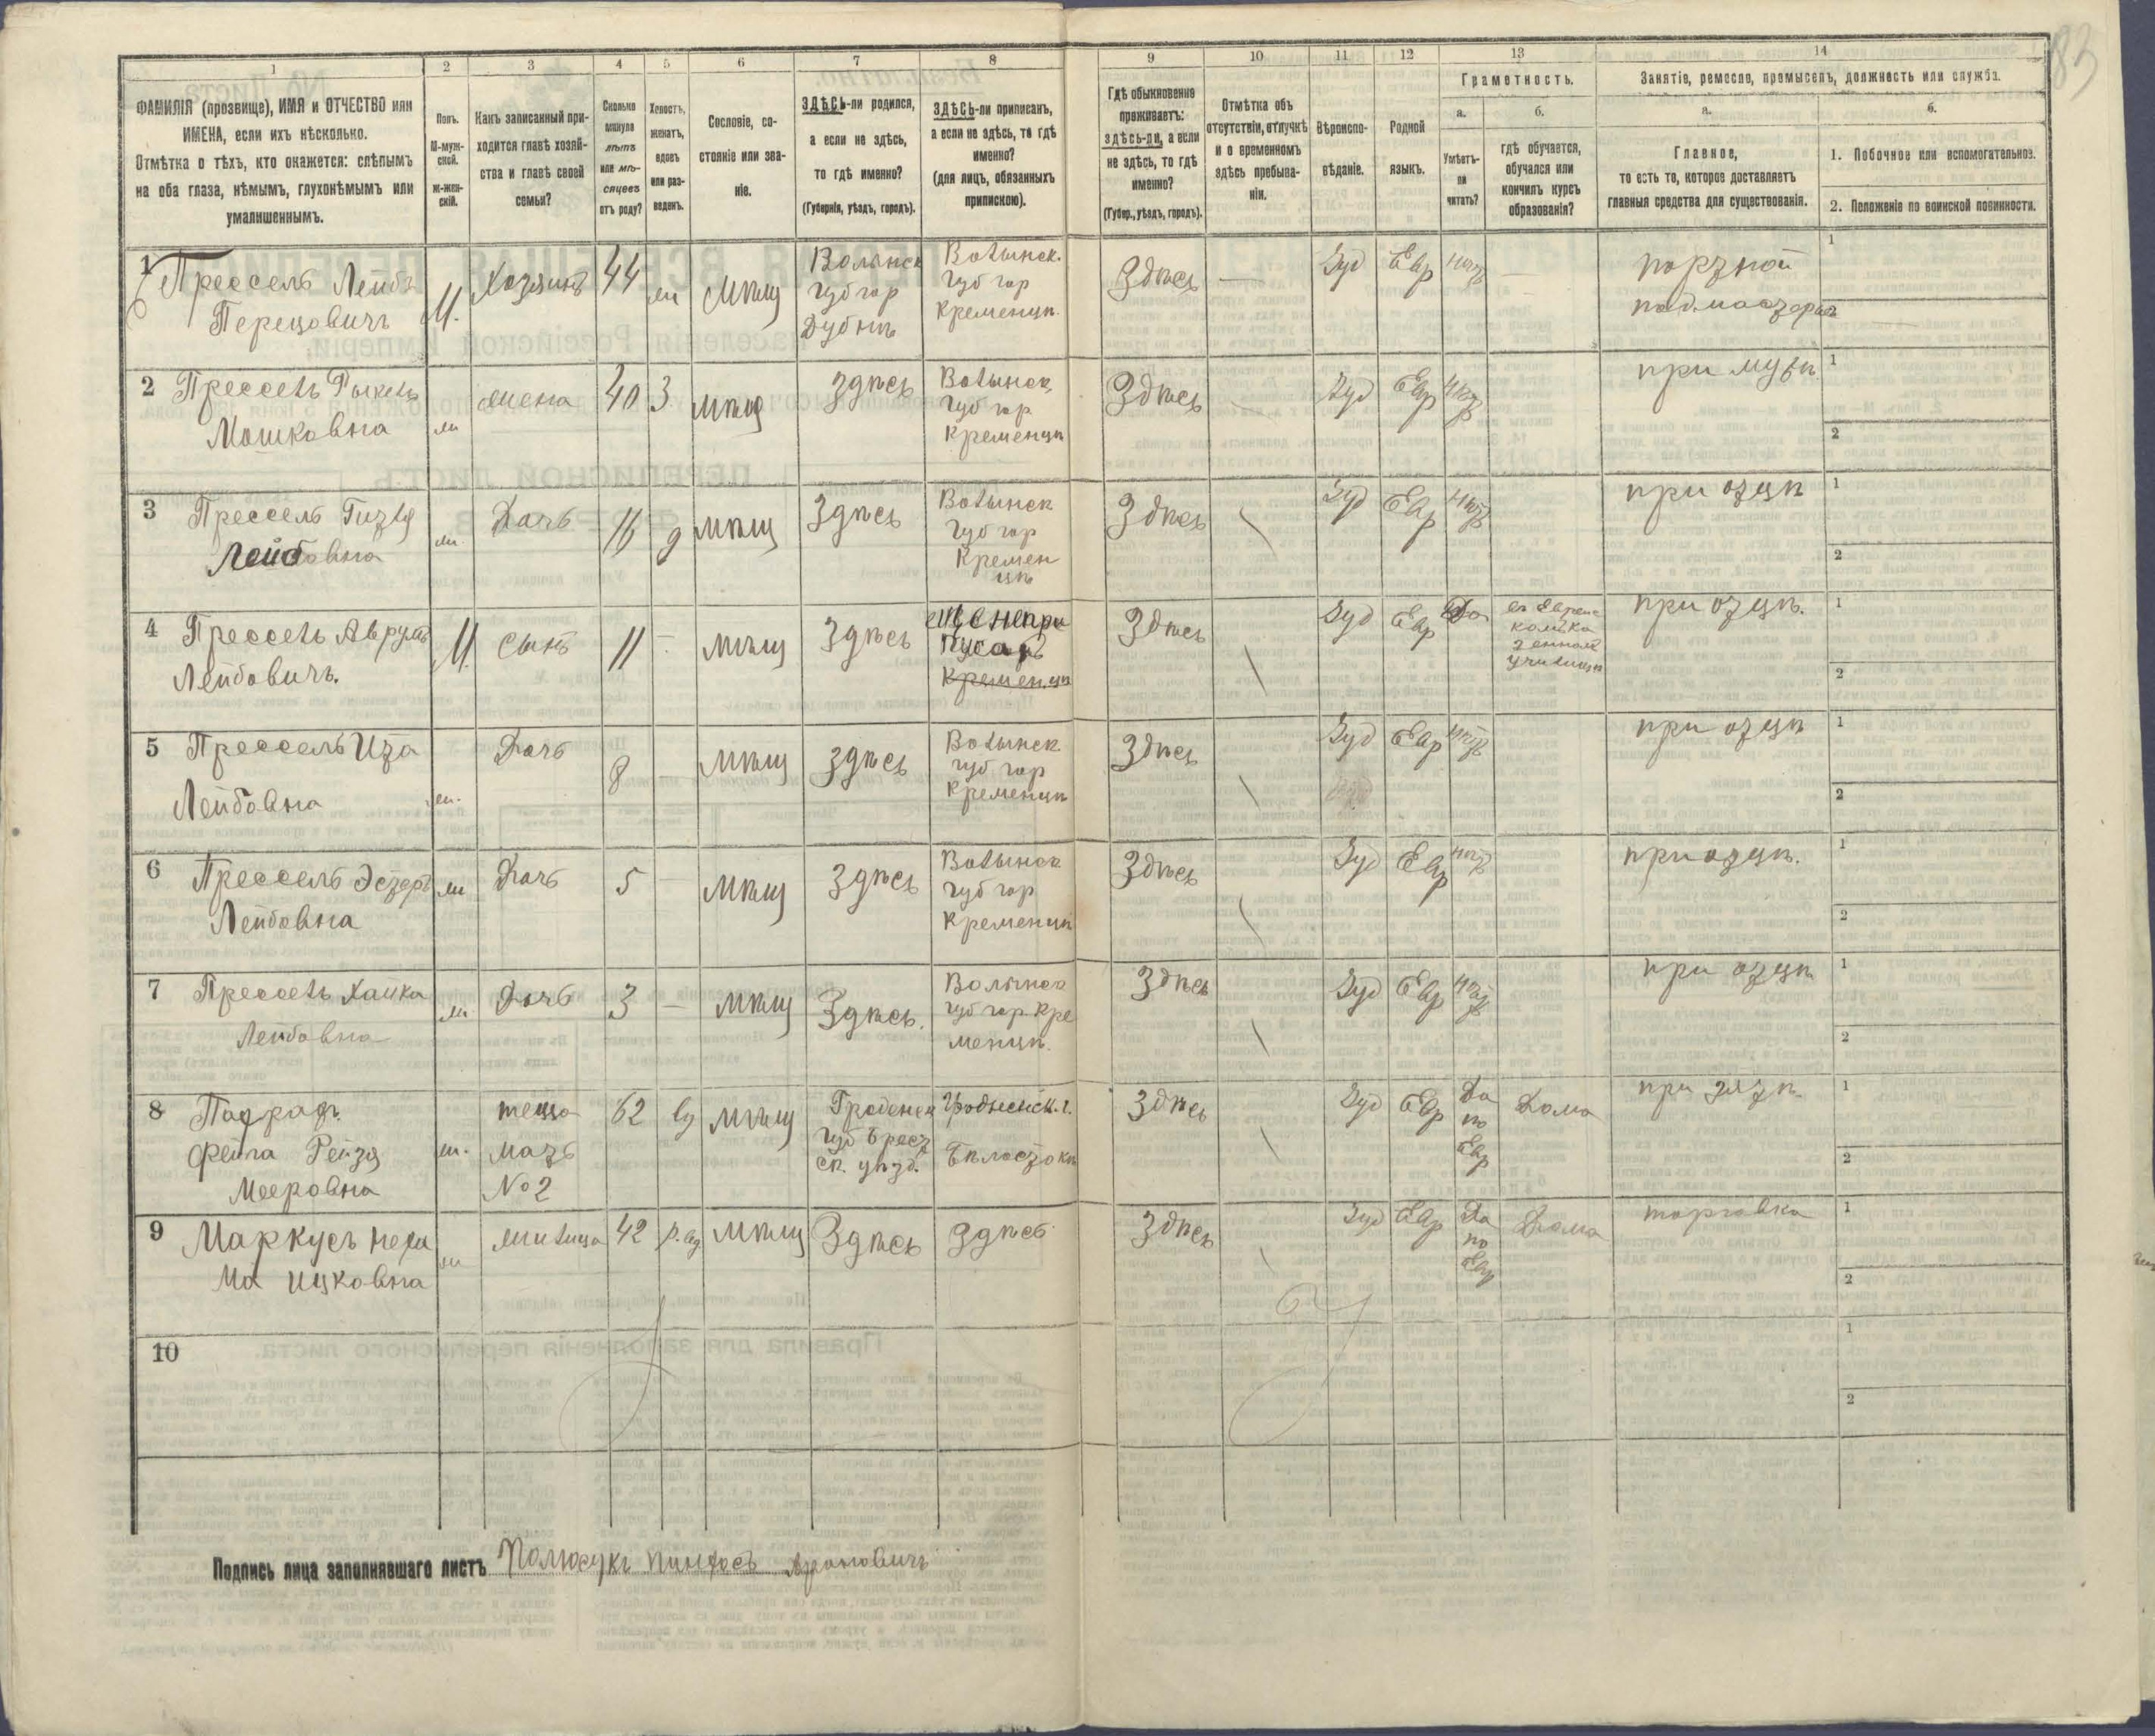 1
2
3
4
5
6
7
8
9
10
11
12
13
14
ФАМИЛІЯ (прозвище), ИМЯ и ОТЧЕСТВО или
ИМЕНА, если ихъ нѣсколько.
Отмѣтка о тѣхъ, кто окажется: слѣпымъ
на оба глаза, нѣмымъ, глухонѣмымъ или
умалишеннымъ.
Полъ.
М-муж-
ской.
ж-жен-
скій.
Какъ записанный при-
ходится главѣ хозяй-
ства и главѣ своей
семьи?
Сколько
минуло
лѣтъ
или мѣ-
сяцевъ
отъ роду?
Холостъ,
женатъ,
вдовъ
или раз-
веденъ.
Сословіе, со-
стояніе или зва-
ніе.
ЗДѢСЬ-ли родился,
а если не здѣсь,
то гдѣ именно?
(Губернія, уѣздъ, городъ).
ЗДѢСЬ-ли приписанъ,
а если не здѣсь, то гдѣ
именно?
(для лицъ, обязанныхъ
припискою).
Гдѣ обыкновенно
проживаетъ:
здѣсь-ли, а если
не здѣсь, то гдѣ
именно?
(Губер., уѣздъ, городъ).
Отмѣтка объ
отсутствіи, отлучкѣ
и о временномъ
здѣсь пребыва-
ніи.
Вѣроиспо-
вѣданіе.
Родной
языкъ.
Грамотность.
а.
Умѣетъ-
ли
читать?
б.
гдѣ обучается,
обучался или
кончилъ курсъ
образованія?
Занятіе, ремесло, промыселъ, должность или служба.
а.
Главное,
то есть то, которое доставляетъ
главныя средства для существованія.
б.
1. Побочное или вспомогательное.
2. Положеніе по воинской повинности.
83
1
Прессель Лейбъ
Перецовичъ
М.
Хозяинъ
44
ж
мѣщ
Волынск
губ гор
Дубнѣ
Волынск.
губ гор
Кременцѣ.
Здѣсь
Іуд
Евр
нѣтъ
портной
подмастерье
1
2
2 Прессель Рыкель
Мошковна
ж
жена
40
З
мѣщ
Здѣсь
Волынск
губ гор
Кременцѣ
Здѣсь
Іуд
Евр
нѣтъ
при мужѣ
1
2
3 Прессель Гитля
Лейбовна
ж.
Дочь
16
д
мѣщ
Здѣсь
Волынск
губ гор
Кремен
цѣ
Здѣсь
Іуд
Евр
нѣтъ
при отцѣ
1
2
4 Прессель Аврумъ
Лейбовичъ.
М.
сынъ
11
мѣщ
Здѣсь
Кременцѣ
Здѣсь
Іуд
Евр
Да
училищѣ
при отцѣ.
1
2
5 Прессель Ита
Лейбовна
ж.
Дочь
8
мѣщ
Здѣсь
Волынск
губ гор
Кременцѣ
Здѣсь
Іуд
Евр
нѣтъ
при отцѣ
1
2
6 Прессель Эстеръ
Лейбовна
ж
Дочь
5
мѣщ
Здѣсь
Волынск
губ гор
Кременцѣ
Здѣсь
Іуд
Евр
нѣтъ
при отцѣ.
1
2
7 Прессель Хайка
Лейбовна
ж
Дочь
3
мѣщ
Здѣсь.
Волынск
губ гор. Кре
менцѣ.
Здѣсь
Іуд
Евр
нѣтъ
при отцѣ
1
2
8
Фейга Рейзя
Мееровна
ж.
теща
мать
№ 2
62
вд
мѣщ
Гроденск
губ Брест
ск. уѣзд.
Гродненск. г.
Бѣлостокѣ
Здѣсь
Іуд
Евр
Да
по
Евр
Дома
при зятѣ
1
2
9 Маркусъ Неха
Ма Ицковна
ж
жилица
42
мѣщ
Здѣсь
Здѣсь
Здѣсь
Іуд
Евр
Да
по
Евр
Дома
торговка
1
2
10
1
2
Подпись лица заполнявшаго листъ Полюсукъ Пинхосъ Ароновичъ